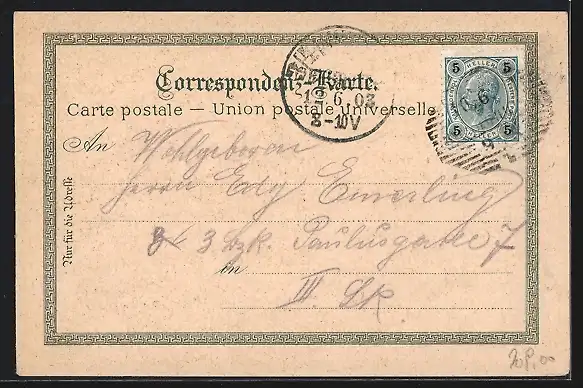 Correspondenz-Karte.
Carte postale — Union postale universelle
21. 6. 02
8-10V
5 HELLER 5
5 5
An Wohlgeboren
Herrn Edy Emerling
3 Bzk. Paulusgasse 7
in
III. Bk.
Nur für die Adresse